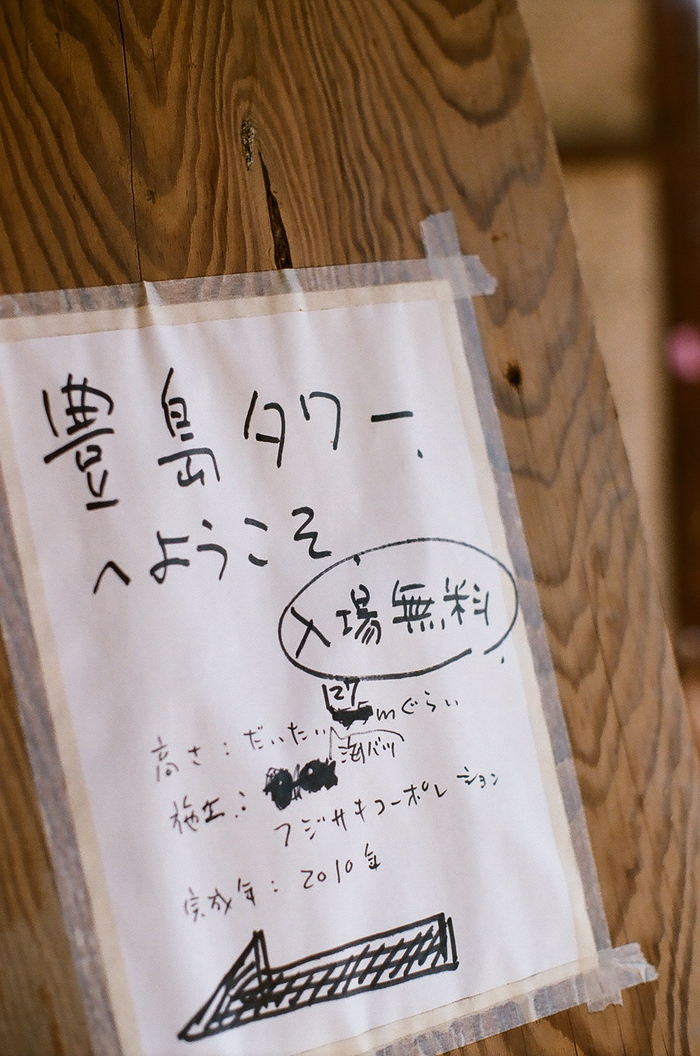 豊島タワー
へようこそ
入場無料
高さ：だいたい27mぐらい
施工：
フジサキコーポレーション
完成年：2010年